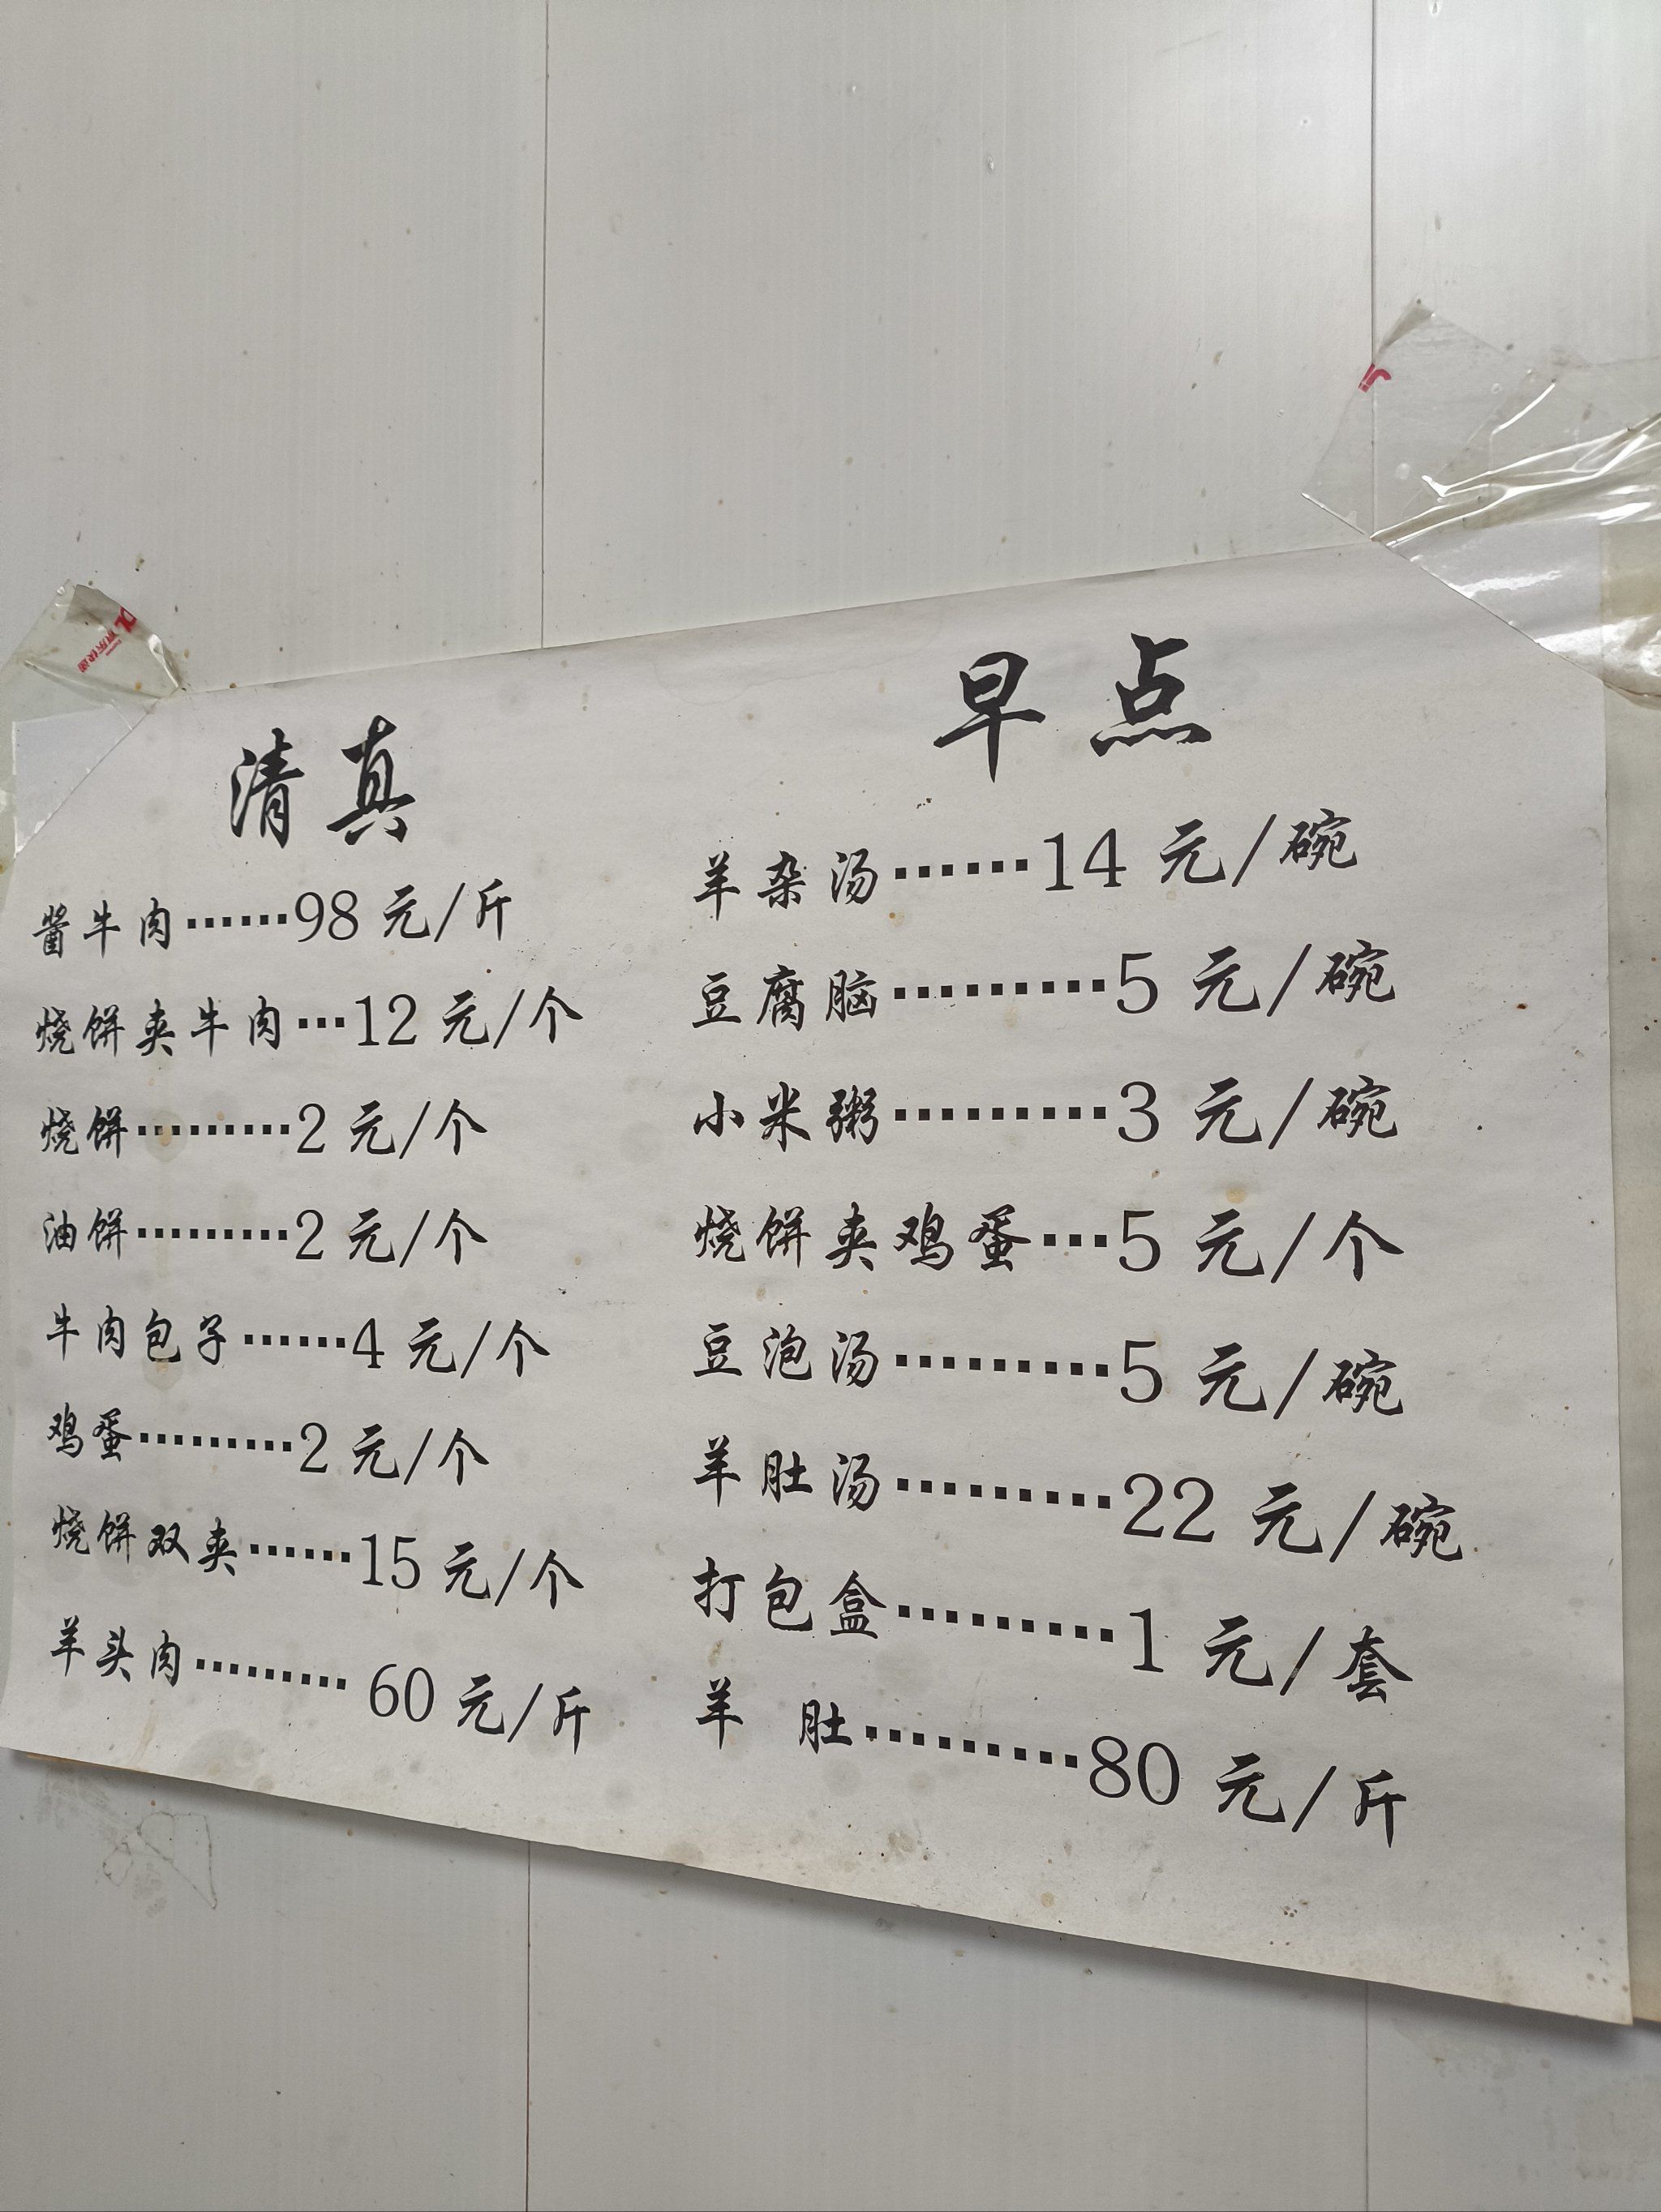 清真 早点
酱牛肉······98 元/斤
烧饼夹牛肉···12 元/个
烧饼·········2 元/个
油饼·········2 元/个
牛肉包子······4 元/个
鸡蛋·········2 元/个
烧饼双夹······15 元/个
羊头肉········· 60 元/斤
羊杂汤······14 元/碗
豆腐脑·········5 元/碗
小米粥·········3 元/碗
烧饼夹鸡蛋···5 元/个
豆泡汤·········5 元/碗
羊肚汤·········22 元/碗
打包盒·········1 元/套
羊 肚·········80 元/斤